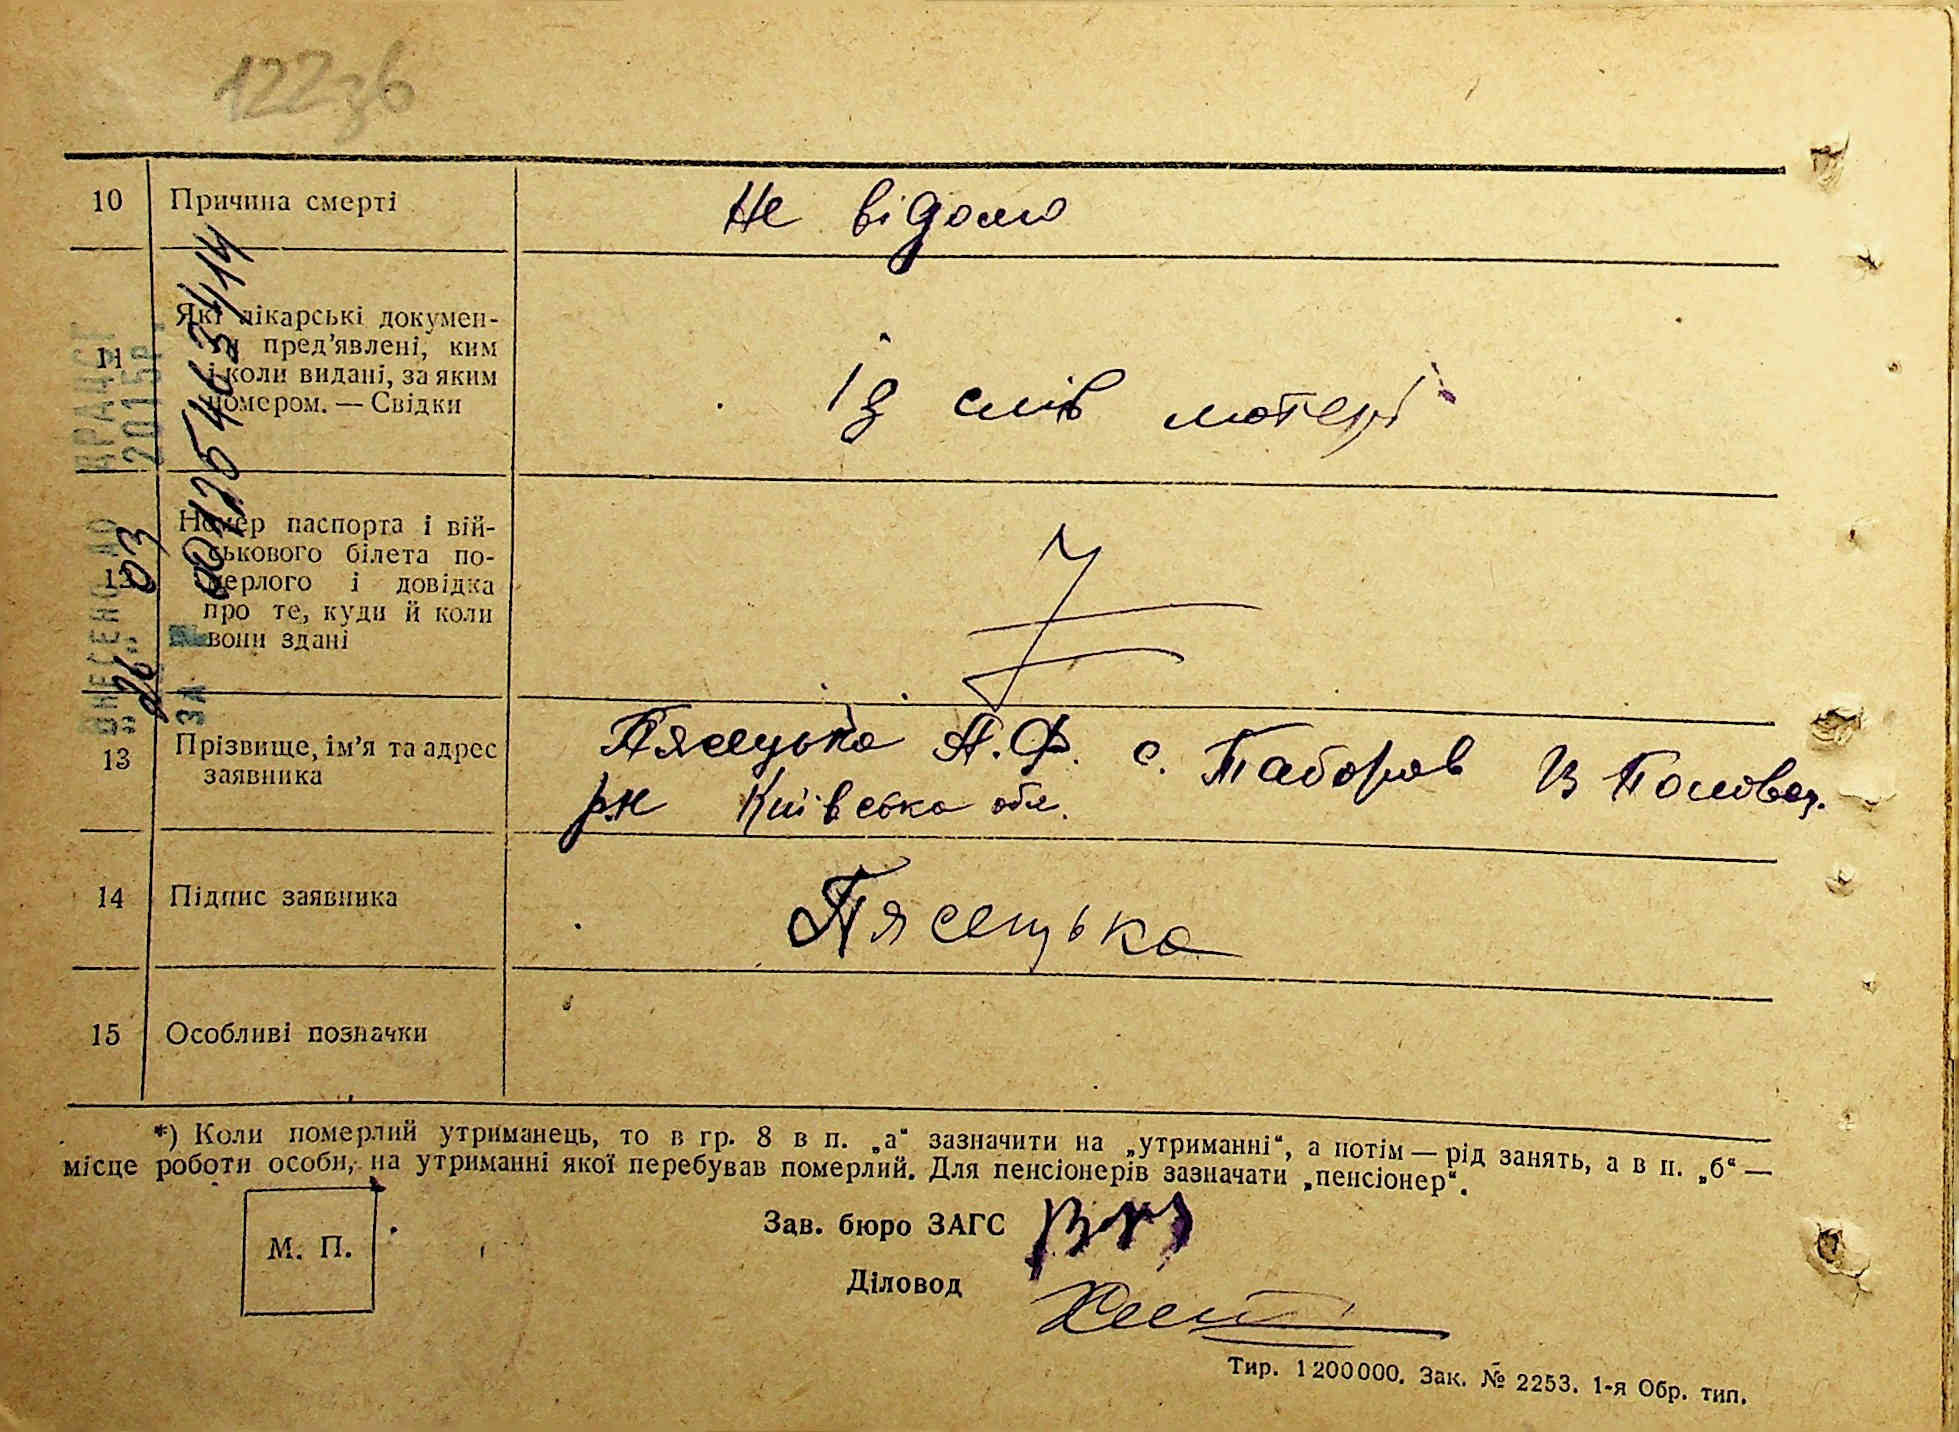 122зв
10 Причина смерті Не відомо
11 Які лікарські докумен-
ти пред’явлені, ким
і коли видані, за яким
номером. — Свідки
Із слів матері
12 Номер паспорта і вій-
ськового білета по-
мерлого і довідка
про те, куди й коли
вони здані
13 Прізвище, ім’я та адрес
заявника
Пясецька А.Ф. с. Таборов В Половец.
рн Київська обл.
14 Підпис заявника Пясецька
15 Особливі позначки
*) Коли померлий утриманець, то в гр. 8 в п. „а“ зазначити на „утриманні“, а потім — рід занять, а в п. „б“ —
місце роботи особи, на утриманні якої перебував померлий. Для пенсіонерів зазначати „пенсіонер“.
М. П.
Зав. бюро ЗАГС
Діловод
Тир. 1200000. Зак. № 2253. 1-я Обр. тип.
ВНЕСЕНО ДО ДРАЦСГ
„26“ 03 2015р.
ЗА №